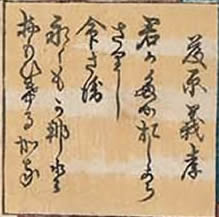 藤原義孝
君か為おしから
さりし
命さへ
永くもかなと
おもひけるかな